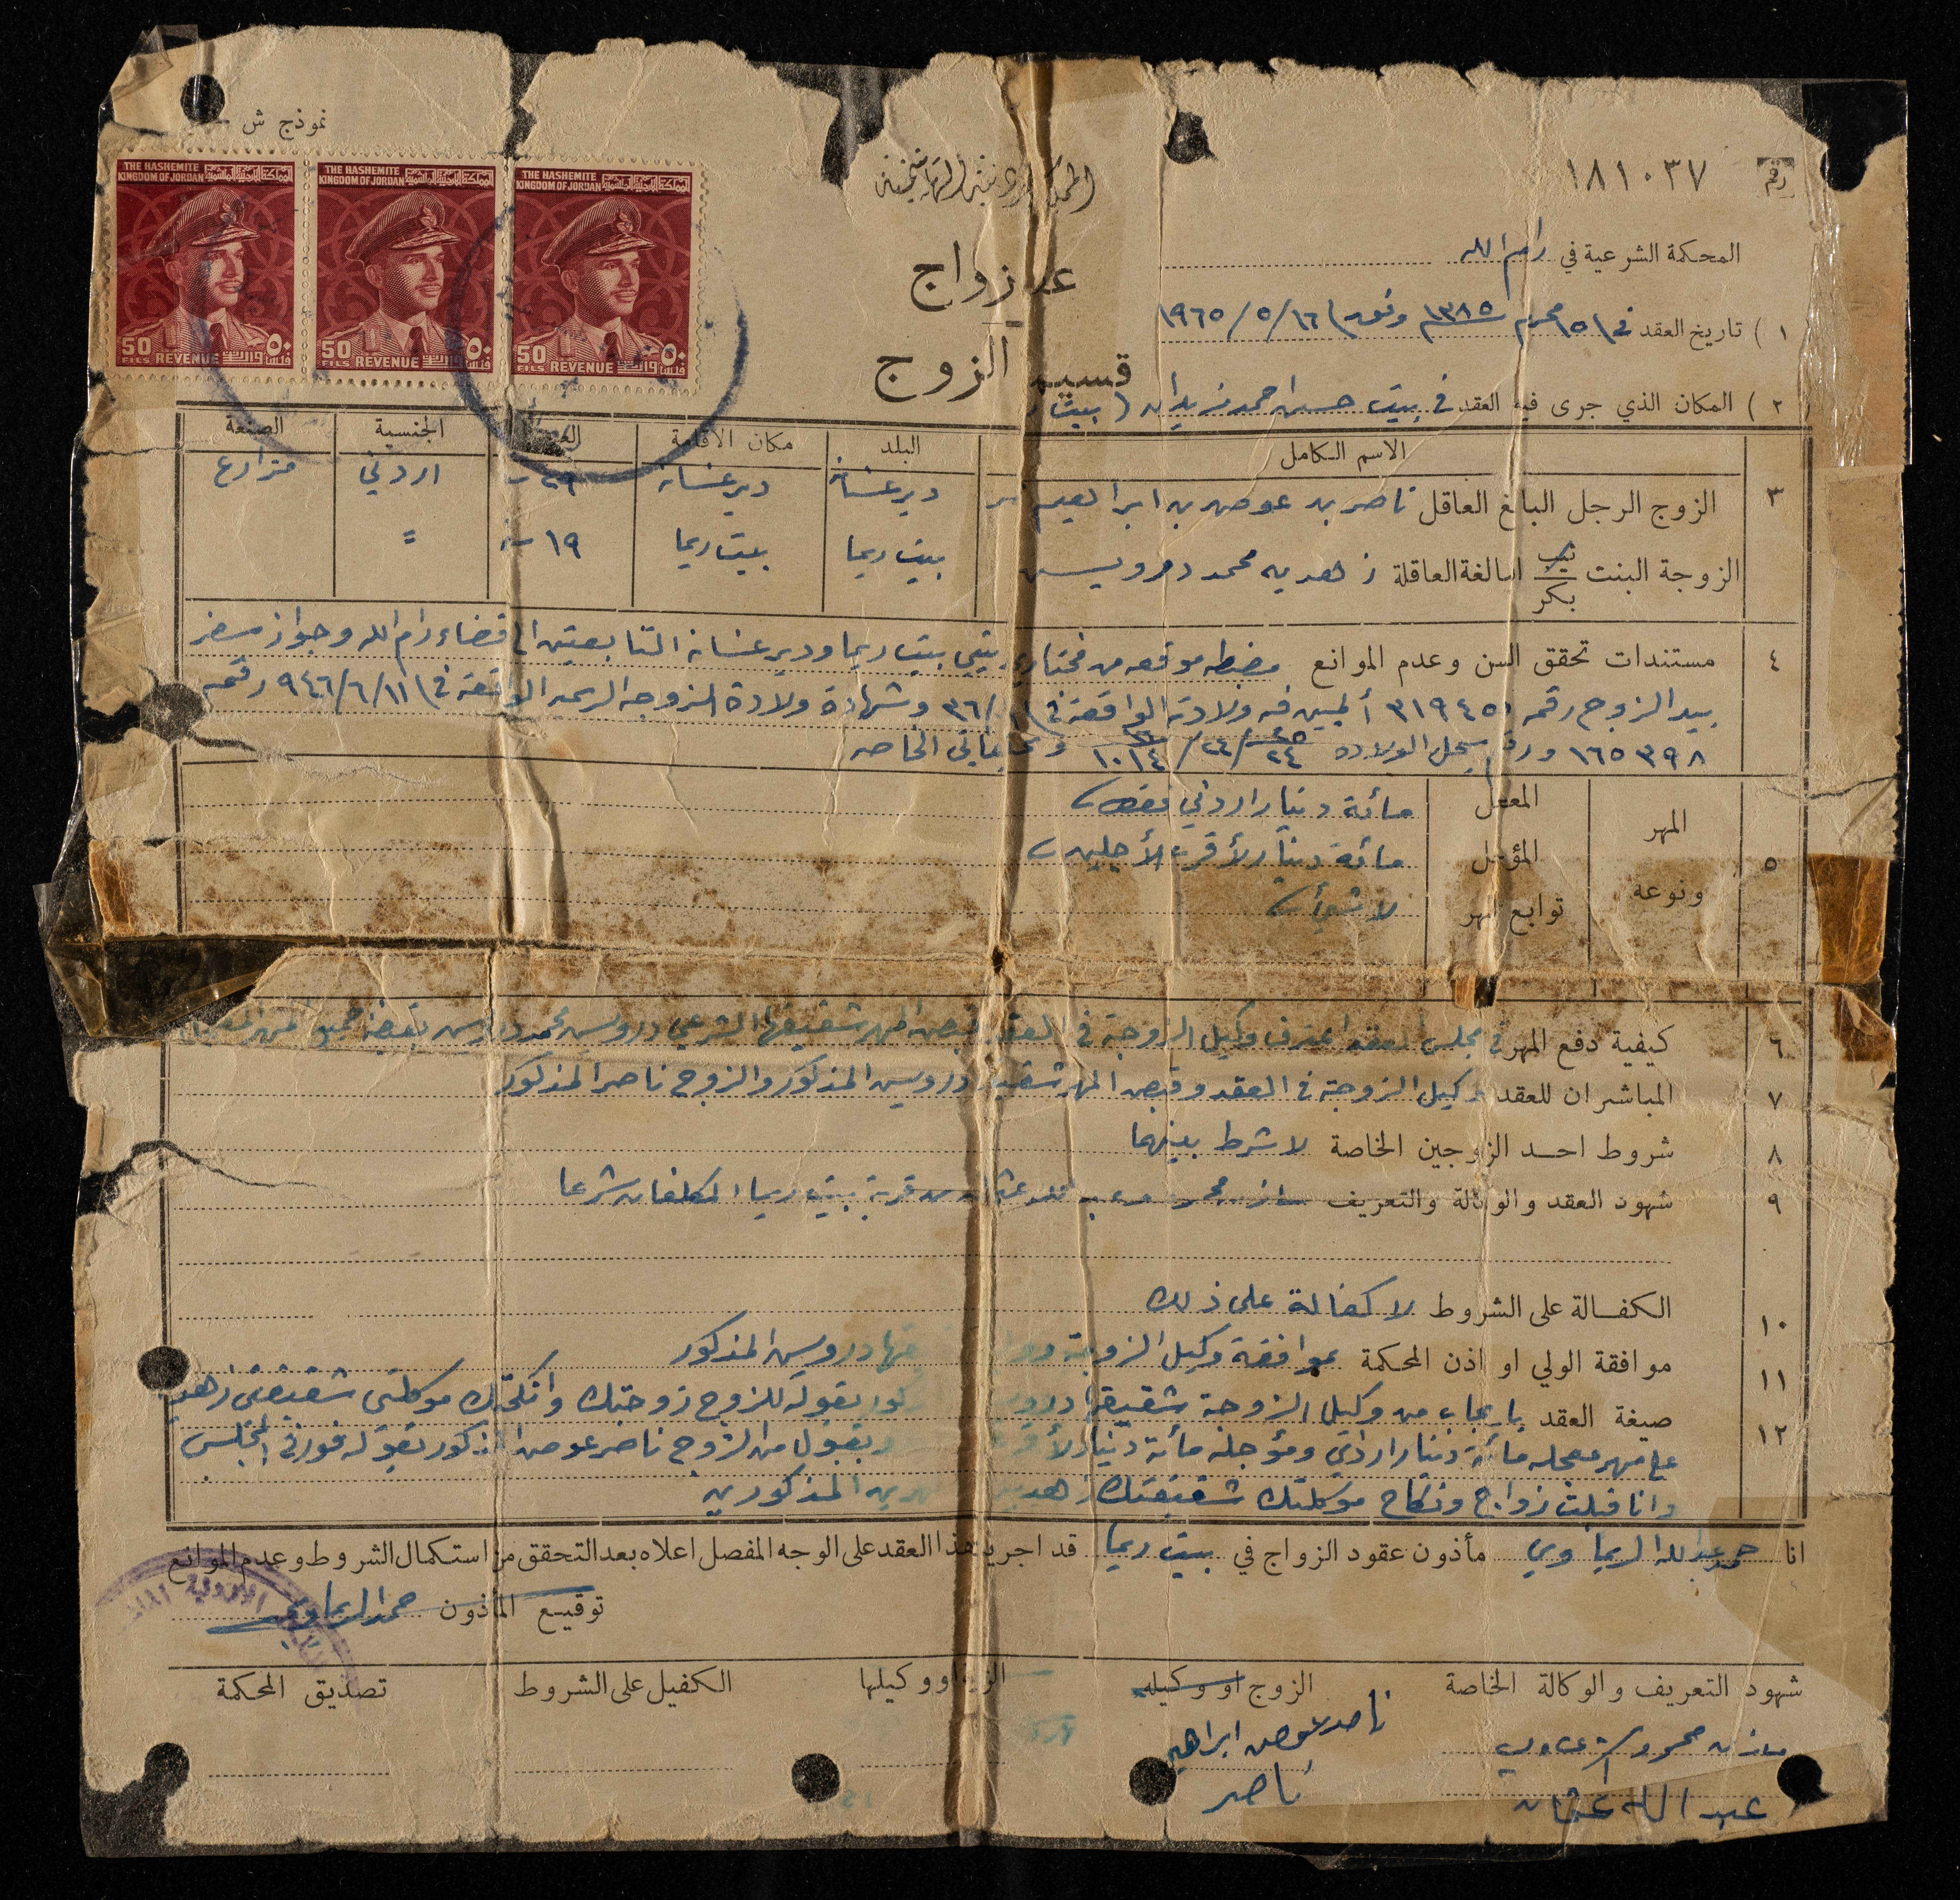 نموذج ش
THE HASHEMITE KINGDOM OF JORDAN المملكة الاردنية الهاشمية
50 FILS REVENUE ٥٠ فلسا
THE HASHEMITE KINGDOM OF JORDAN المملكة الاردنية الهاشمية
50 FILS REVENUE ٥٠ فلسا
THE HASHEMITE KINGDOM OF JORDAN المملكة الاردنية الهاشمية
50 FILS REVENUE ٥٠ فلسا
رقم ١٨١٠٣٧
المملكة الاردنية الهاشمية
عقد زواج
قسيمة الزوج
المحكمة الشرعية في رام الله
١) تاريخ العقد في ١٥ محرم ١٣٨٥ وفق ١٦/٥/١٩٦٥
٢) المكان الذي جرى فيه العقد في بيت حسن احمد زيدان (بيت
الاسم الكامل البلد مكان الاقامة الجنسية الصنعة
٣ الزوج الرجل البالغ العاقل ناصر بن عوض بن ابراهيم دير غسانة دير غسانة ٢٩ اردني مزارع
الزوجة البنت ثيب بكر البالغة العاقلة زهديه محمد درويش بيت ريما بيت ريما ١٩ سنة =
٤ مستندات تحقق السن وعدم الموانع مضبطه موقعه من مختاري بيت ريما ودير غسانة التابعتين الى قضاء رام الله وجواز سفر
بيد الزوج رقم ٣١٩٤٥٠ ألمبين فيه ولادته الواقعة في ٣٦ وشهادة ولادة الزوجه الرسميه الواقعة في ١١/٦/٩٤٦ رقم
١٦٥٣٩٨ ورقم سجل الولادة الخاصه
٥ المهر ونوعه المعجل مائة دينار اردني فقط
المؤجل مائة دينار لأقرب الأجلين
توابع المهر لا شيء
٦ كيفية دفع المهر في مجلس العقد اعترف وكيل الزوجة في العقد وقبض المهر شقيقها الشرعي درويش محمد درويش بقبضه جميع المهر
٧ المباشران للعقد وكيل الزوجة في العقد وقبض المهر شقيقها درويش المذكور والزوج ناصر المذكور
٨ شروط احد الزوجين الخاصة لا شرط بينهما
٩ شهود العقد والوكالة والتعريف مازن محمود وعبد الله عثمان من قرية بيت ريما المكلفان شرعا
١٠ الكفالة على الشروط لا كفالة على ذلك
١١ موافقة الولي او اذن المحكمة بموافقة وكيل الزوجة درويش المذكور
١٢ صيغة العقد بايجاب من وكيل الزوجة شقيقها بقوله للزوج زوجتك وانكحتك موكلتي شقيقتي زهديه
على مهر معجله مائة دينار اردني ومؤجله مائة دينار لأقرب وبقبول من الزوج ناصر عوض المذكور بقوله فورا في المجلس
وانا قبلت زواج ونكاح موكلتك شقيقتك زهديه المذكورين
انا حمد عبد الله الريماوي مأذون عقود الزواج في بيت ريما قد اجريت هذا العقد على الوجه المفصل اعلاه بعد التحقق من استكمال الشروط وعدم الموانع
توقيع المأذون حمد الريماوي
شهود التعريف والوكالة الخاصة الزوج او وكيله الزوجة او وكيلها الكفيل على الشروط تصديق المحكمة
مازن محمود ناصر عوض ابراهيم
عبد الله عثمان ناصر